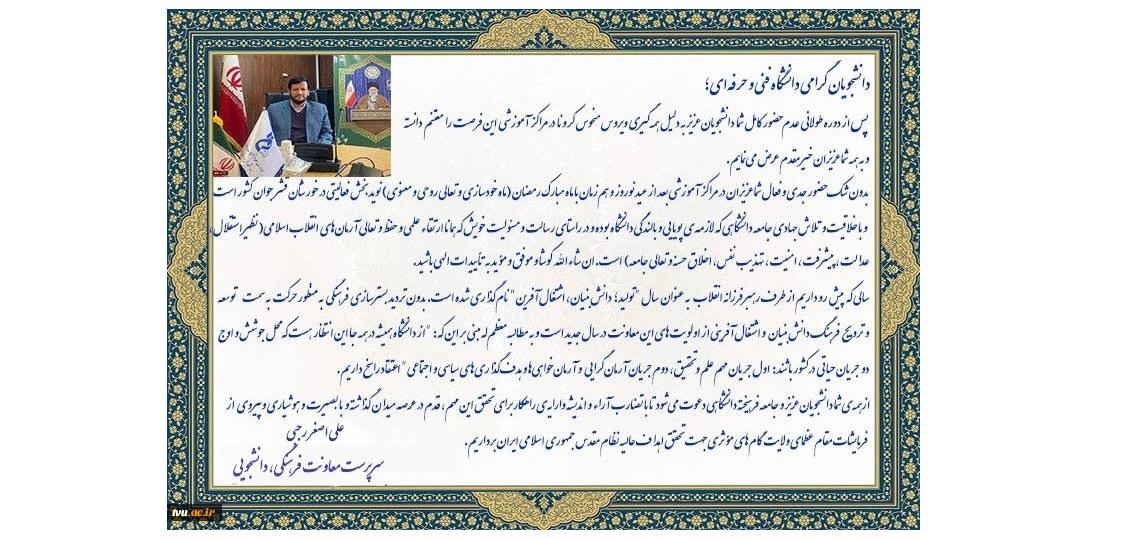 دانشجویان گرامی دانشگاه فنی و حرفه ای؛
پس از دوره طولانی عدم حضور کامل شما دانشجویان عزیز به دلیل همه گیری ویروس منحوس کرونا در مراکز آموزشی این فرصت را مغتنم دانسته
و به همه شما عزیزان خیرمقدم عرض می نمایم.
بدون شک حضور جدی و فعال شما عزیزان در مراکز آموزشی بعد از عید نوروز و هم زمان با ماه مبارک رمضان (ماه خودسازی و تعالی روحی و معنوی) نوید بخش فعالیتی در خور شان قشر جوان کشور است
و با خلاقیت و تلاش جهادی جامعه دانشگاهی که لازمه ی پویایی و بالندگی دانشگاه بوده و در راستای رسالت و مسئولیت خویش که همانا ارتقاء علمی و حفظ و تعالی آرمان های انقلاب اسلامی( نظیر استقلال،
عدالت، پیشرفت، امنیت، تهذیب نفس، اخلاق حسنه و تعالی جامعه) است. ان شاء الله کوشا و موفق و مؤید به تأییدات الهی باشید.
سالی که پیش رو داریم از طرف رهبر فرزانه انقلاب به عنوان سال "تولید؛ دانش بنیان، اشتغال آفرین" نام گذاری شده است. بدون تردید بسترسازی فرهنگی به منظور حرکت به سمت توسعه
و ترویج فرهنگ دانش بنیان و اشتغال آفرینی از اولویت های این معاونت در سال جدید است و به مطالبه معظم له مبنی بر این که: "از دانشگاه همیشه در همه جا این انتظار هست که محل جوشش و اوج
دو جریان حیاتی در کشور باشند: اول جریان مهم علم و تحقیق، دوم جریان آرمان گرایی و آرمان خواهی ها و هدف گذاری های سیاسی و اجتماعی" اعتقاد راسخ داریم.
از همه ی شما دانشجویان عزیز و جامعه فرهیخته دانشگاهی دعوت می شود تا با تضارب آراء و اندیشه و ارایه ی راهکار برای تحقق این مهم، قدم در عرصه میدان گذاشته و با بصیرت و هوشیاری و پیروی از
فرمایشات مقام عظمای ولایت گام های مؤثری جهت تحقق اهداف عالیه نظام مقدس جمهوری اسلامی ایران برداریم.
علی اصغر رجبی
سرپرست معاونت فرهنگی، دانشجویی
tvu.ac.ir